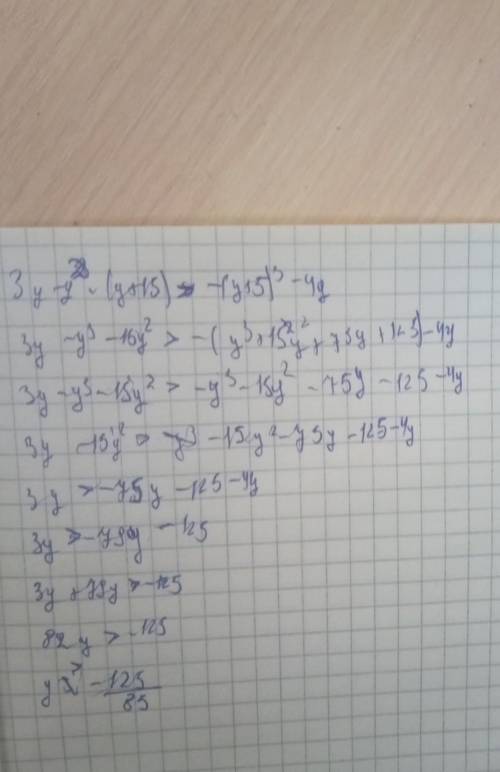 3y - y² · (y+15) > -(y+5)³ - 4y
3y - y³ - 15y² > -(y³ + 15y² + 75y + 125) - 4y
3y - y³ - 15y² > -y³ - 15y² - 75y - 125 - 4y
3y - 15y² > -y³ - 15y² - 75y - 125 - 4y
3y > -75y - 125 - 4y
3y > -79y - 125
3y + 79y > -125
82y > -125
y > -125/83